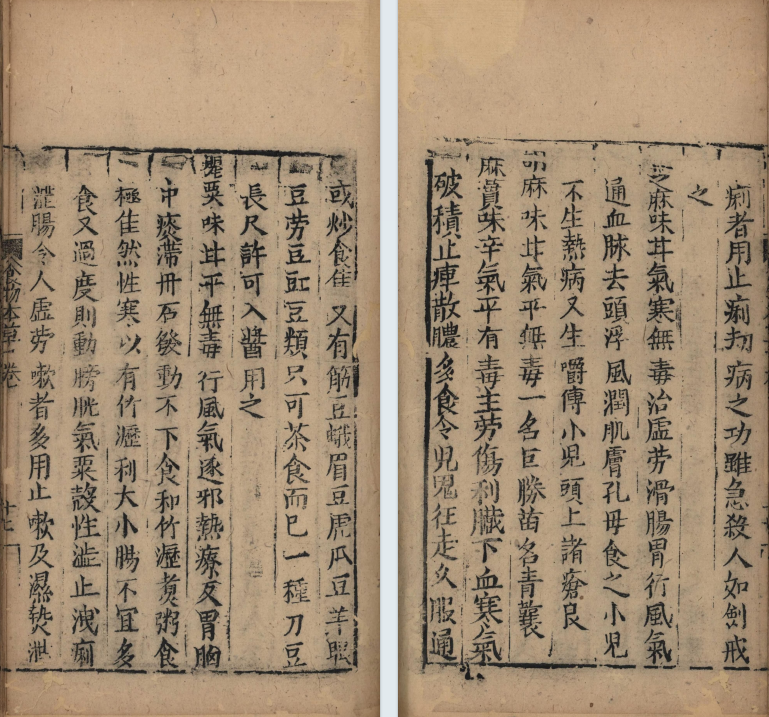 或炒食佳又有筋豆蛾眉豆虎瓜豆羊眼
豆劳豆豇豆類只可茶食而已一種刀豆
長尺許可入醬用之
罌粟味甘平無毒行風氣逐邪熱療反胃胸
中痰滯丹石發動不下食和竹瀝煑粥食
極佳然性寒以有竹瀝利大小腸不宜多
食又過度則動膀胱氣粟殼性澁止洩痢
澁腸令人虛劳嗽者多用止嗽及濕熱泄
食物本草一卷
十七
痢者用止痢刼病之功雖急殺人如劍戒
之
芝麻味甘氣寒無毒治虛劳滑腸胃行風氣
通血脉去頭浮風潤肌膚孔母食之小兒
不生熱病又生嚼傅小兒頭上諸瘡良
胡麻味甘氣平無毒一名巨勝苗名青蘘
麻蕡味辛氣平有毒主劳傷利臟下血寒氣
破積止痺散膿多食令見鬼狂走久服通